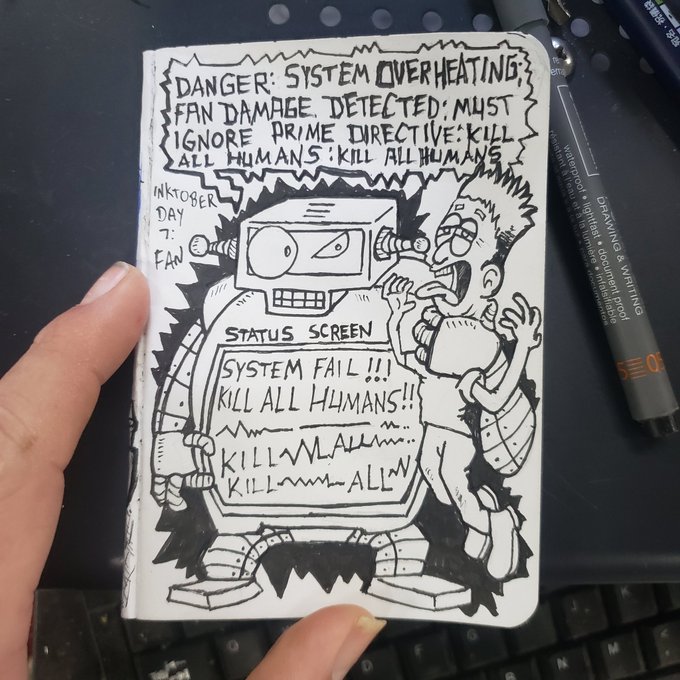 DANGER: SYSTEM OVERHEATING:
FAN DAMAGE DETECTED: MUST
IGNORE PRIME DIRECTIVE: KILL
ALL HUMANS: KILL ALL HUMANS
INKTOBER
DAY
7:
FAN
STATUS SCREEN
SYSTEM FAIL!!!
KILL ALL HUMANS!!
KILL ALL
KILL ALL
DRAWING & WRITING
waterproof • lightfast • document proof
05